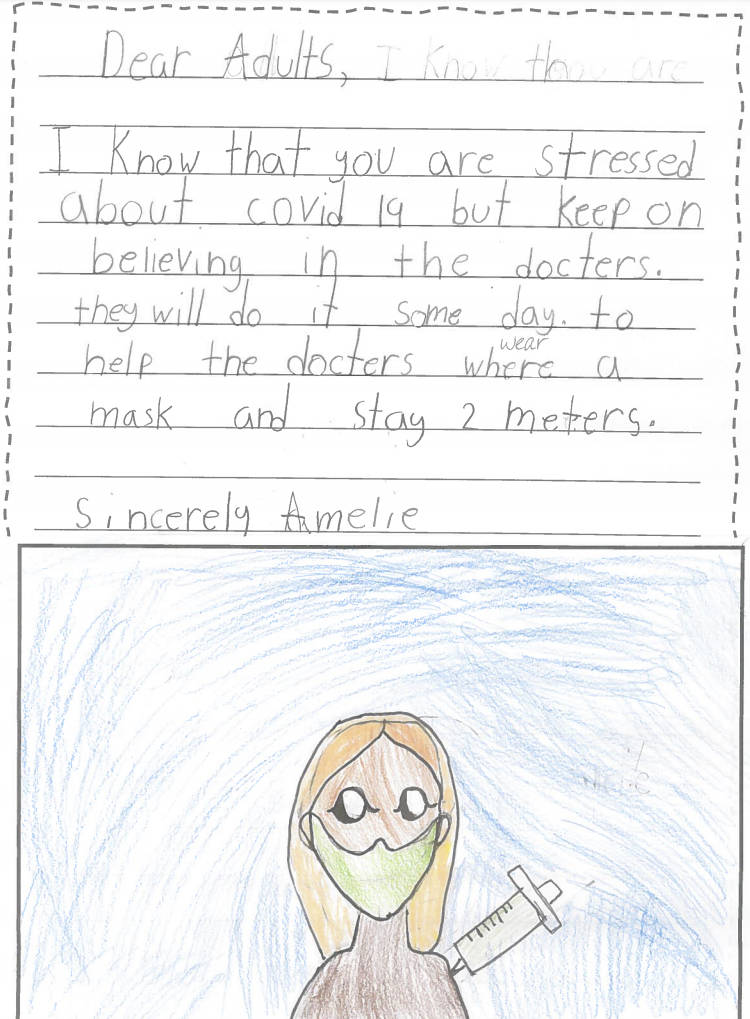 Dear Adults,
I Know that you are stressed
about covid 19 but keep on
believing in the docters.
they will do it some day. to
wear
help the docters where a
mask and stay 2 meters.
Sincerely Amelie